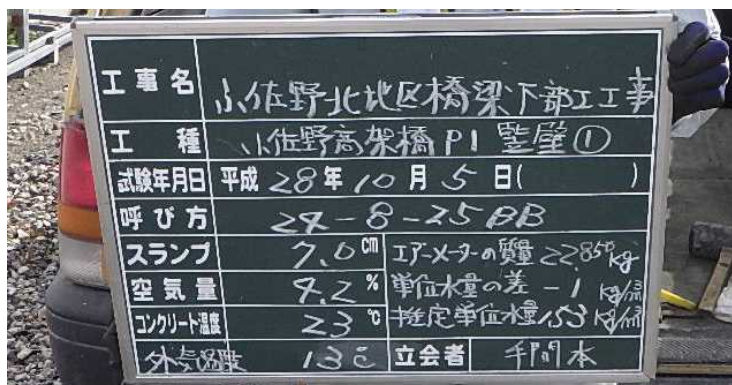 工事名 小佐野北地区橋梁下部工工事
工種 小佐野高架橋P1 竪壁①
試験年月日 平成28年10月5日( )
呼び方 24-8-25BB
スランプ 7.0cm エアーメーターの質量 22.850kg
空気量 4.2% 単位水量の差 -1 kg/m³
コンクリート温度 23℃ 推定単位水量 153 kg/m³
外気温度 13℃ 立会者